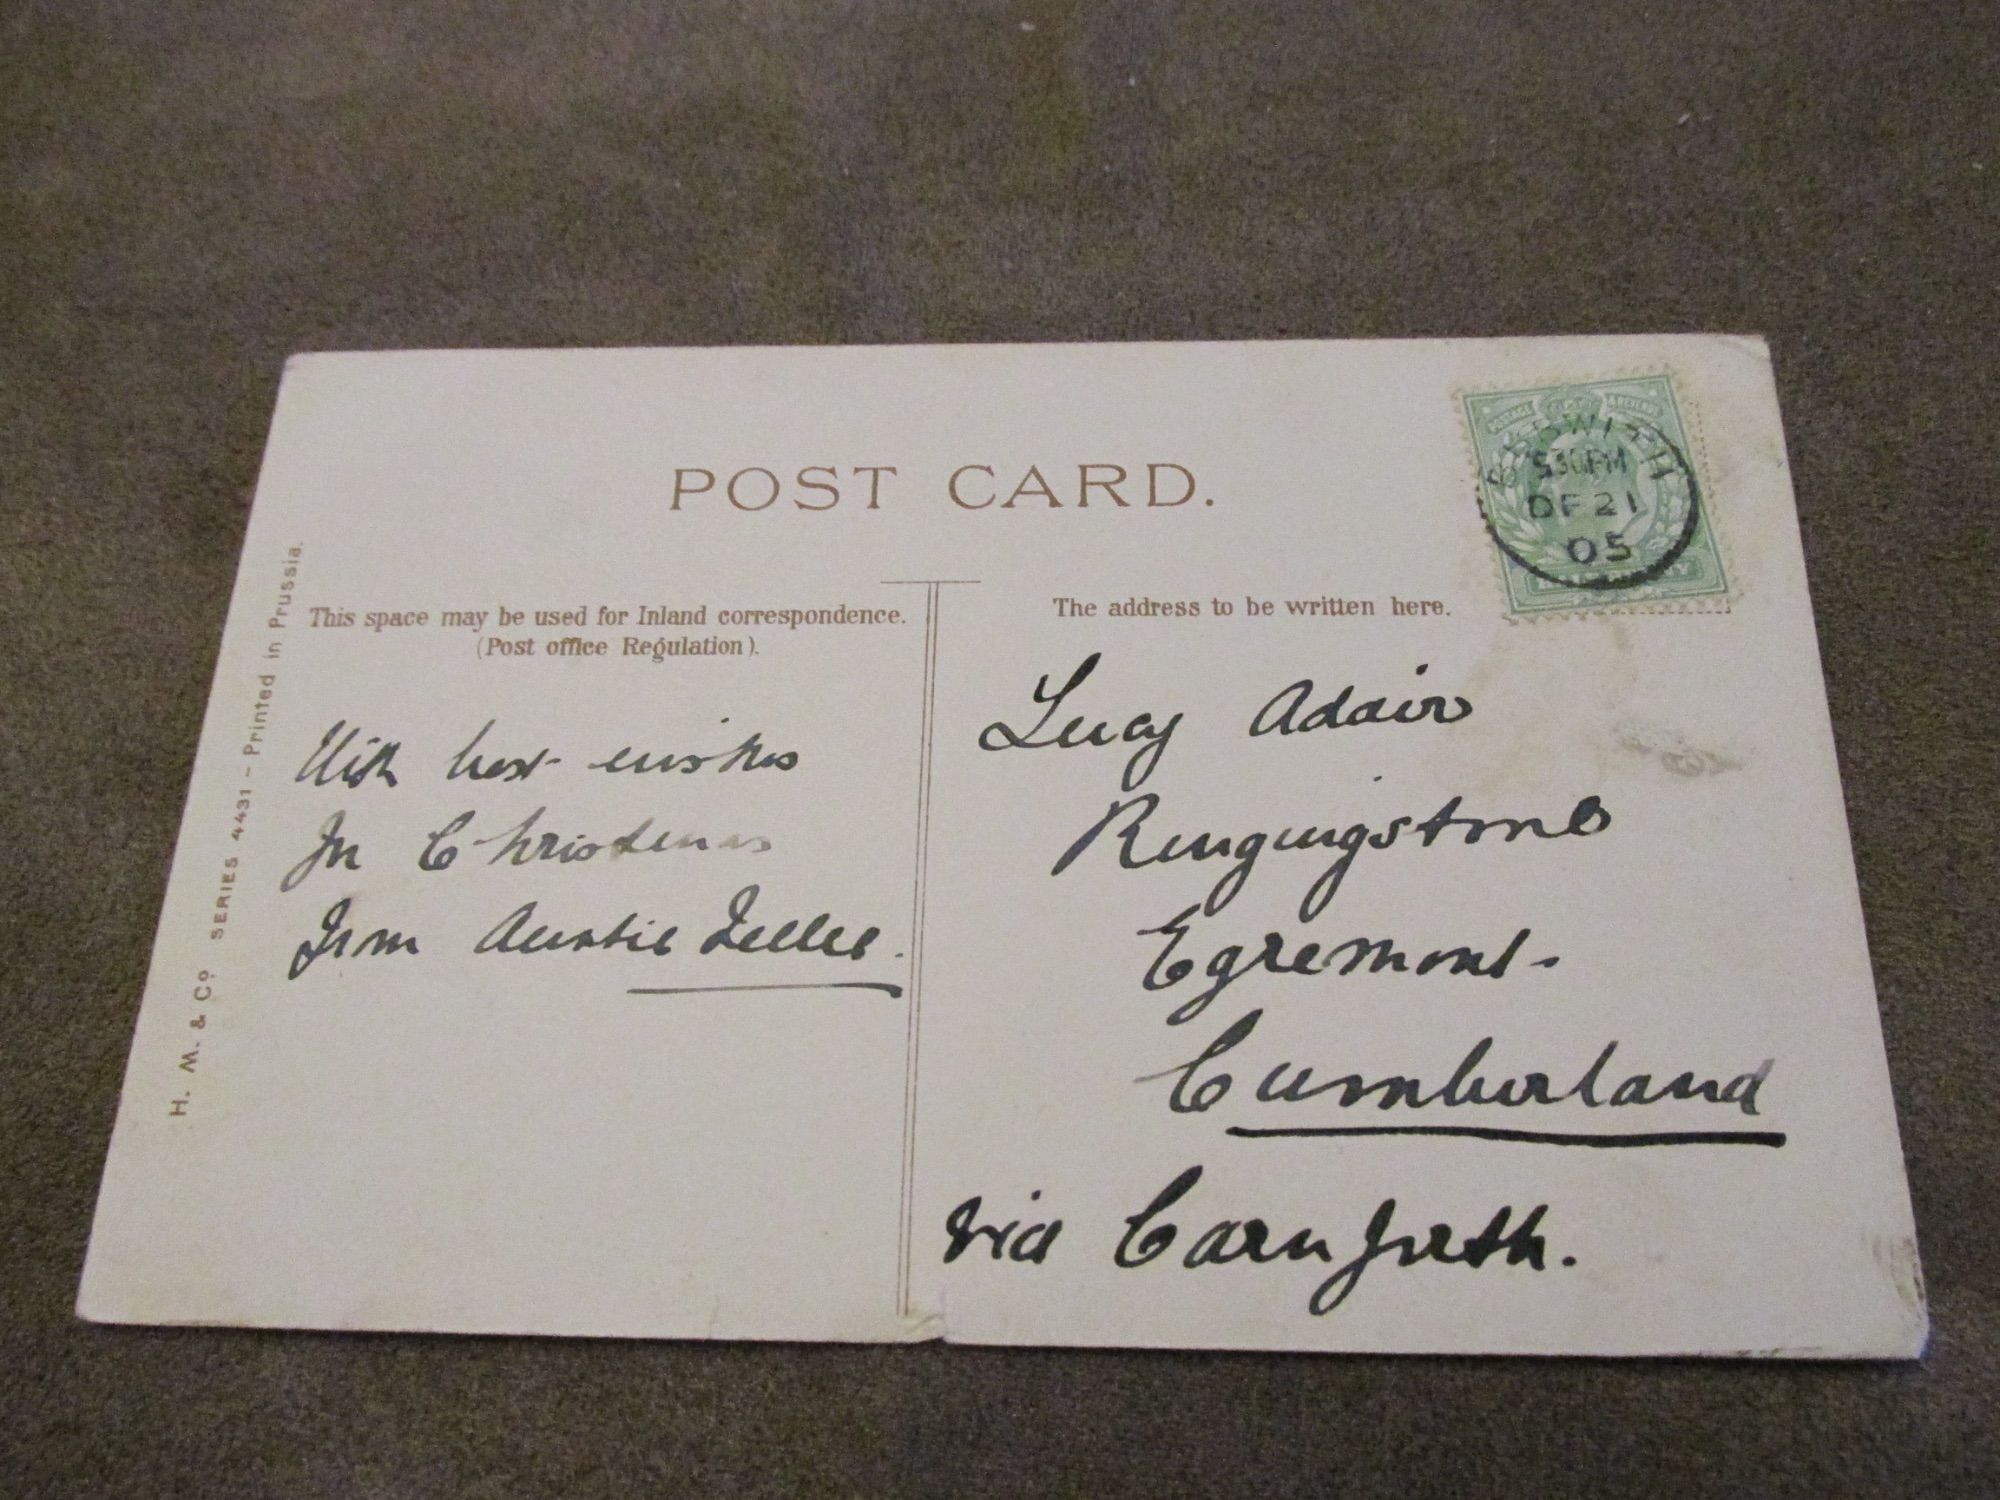 POST CARD.
POSTAGE & REVENUE
BUBWITH
5 30 PM
DE 21
05
HALFPENNY
This space may be used for Inland correspondence.
(Post office Regulation).
With best wishes
for Christmas
from Auntie
The address to be written here.
Lucy Adair
Ringingstone
Egremont.
Cumberland
via Carnforth.
H. M. & Co. SERIES 4431 - Printed in Prussia.